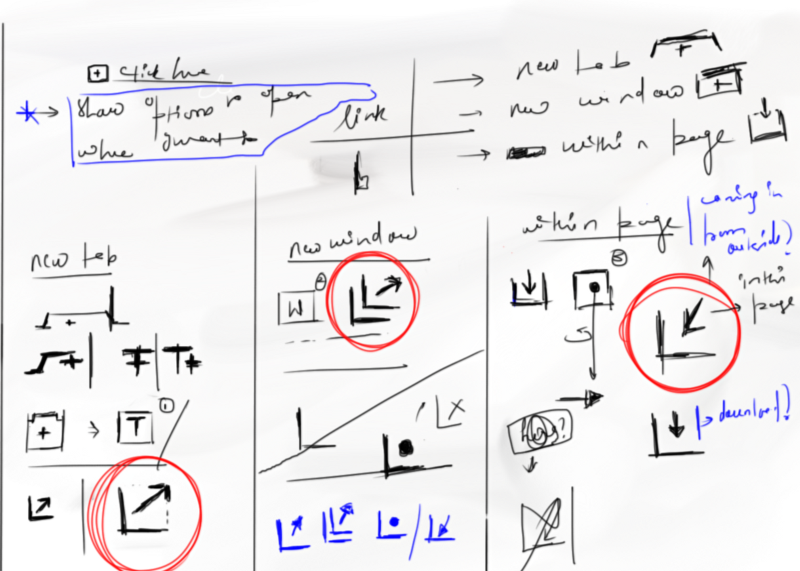 click here
show options to open
where
link
new tab
new window
within page
new tab
T
new window
W
within page
coming in
from
outside?
in this
page
download?